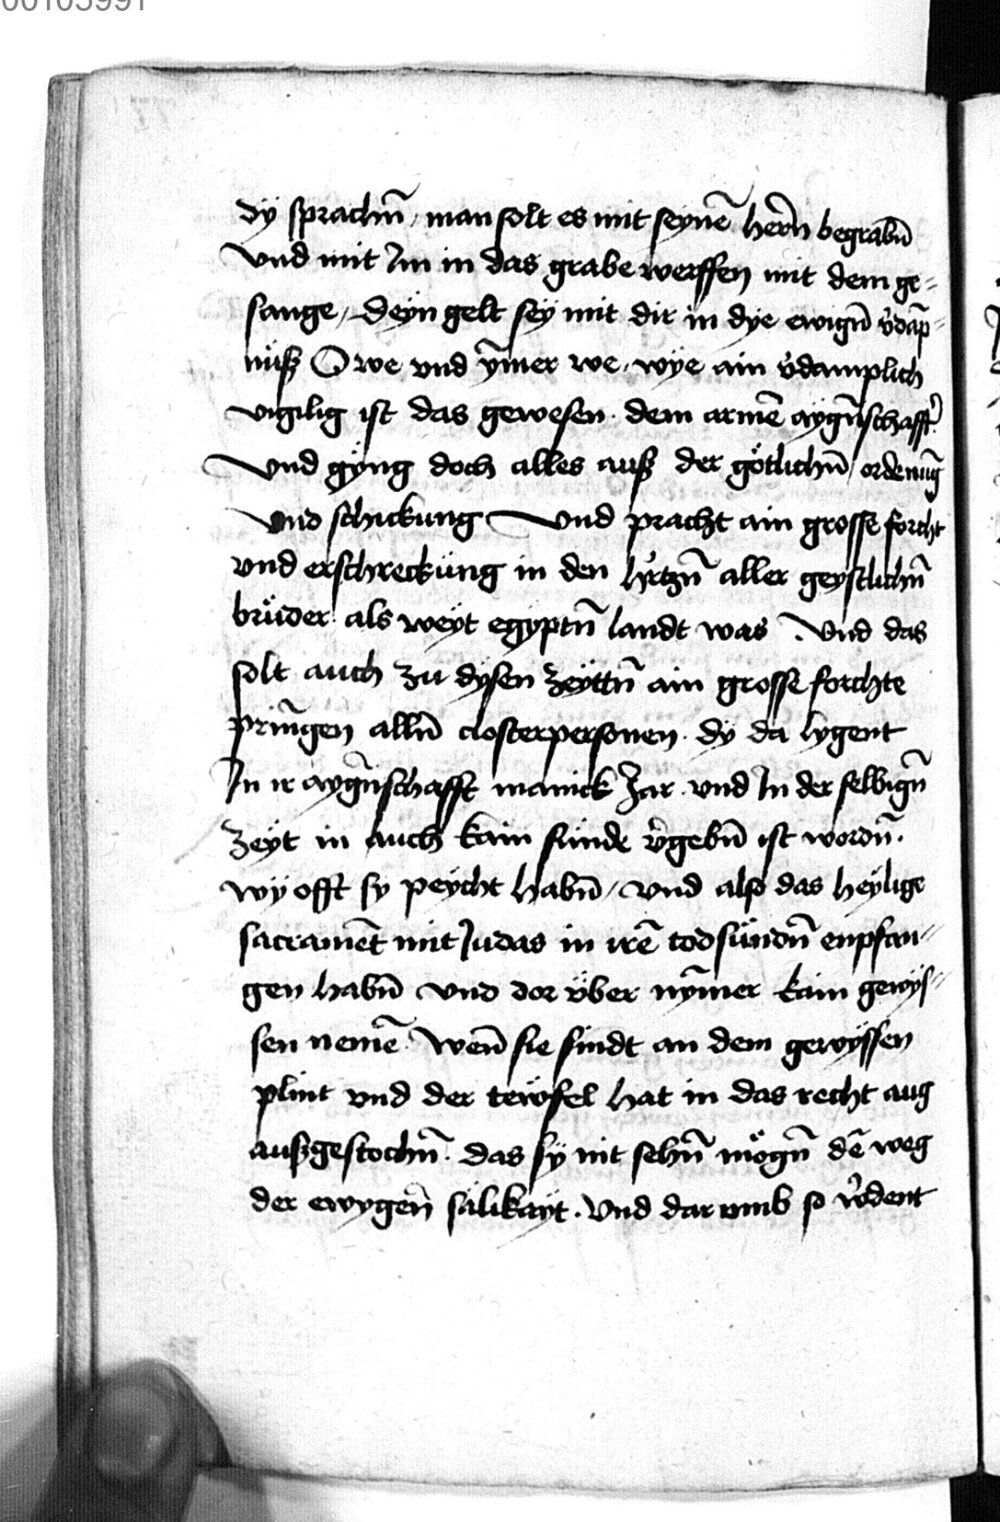 00103991
dÿ sprachn̄ / man solt es mit seynē herñ begrabn̄
Vnd mit Im in das grabe werffen mit dem ge-
sange / deÿn gelt seÿ mit dir in dye ewign̄ v̉dāp-
nüß O we vnd ÿm̄er we / wÿe ain v̉damplich
vigilig ist das gewesen · dem armē aygn̄schafft̉
Vnd gÿng doch alles auß der götlichn̄ ordenūg
Vnd schickung Vnd pracht ain grosse forcht
vnd erschreckŭng in den h̉rtzn̄ aller geystlichn̄
brüder als weÿt egÿptn̄ landt was · Vnd das
solt auch zu dÿsen zeÿttn̄ ain grosse forchte
prin̄gen alln̄ closterpersonen · dÿ da lygent
In ir aygn̄schafft manick Jar · vnd In der selbign̄
zeÿt in auch kain sünde v̉gebn̄ ist wordn̄ ·
wÿ offt sy peÿcht habn̄ / vnd also das heÿlige
sacramēt mit Judas in irē todsündn̄ enpfan-
gen habn̄ vnd dor über nÿm̄er kain gewÿs-
sen nemē Wen̄ sie sindt an dem gewÿssen
plint vnd der tewfel hat in das recht aug
außgestochn̄ · das sÿ nit sehn̄ mögn̄ dē weg
der ewygen̄ sälikäyt · Vnd dar vmb so w̉dent